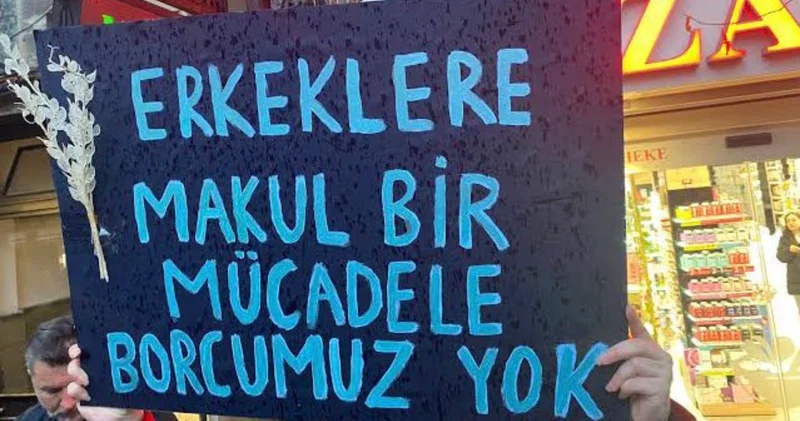 ERKEKLERE
MAKUL BİR
MÜCADELE
BORCUMUZ YOK
ZA
HEKE